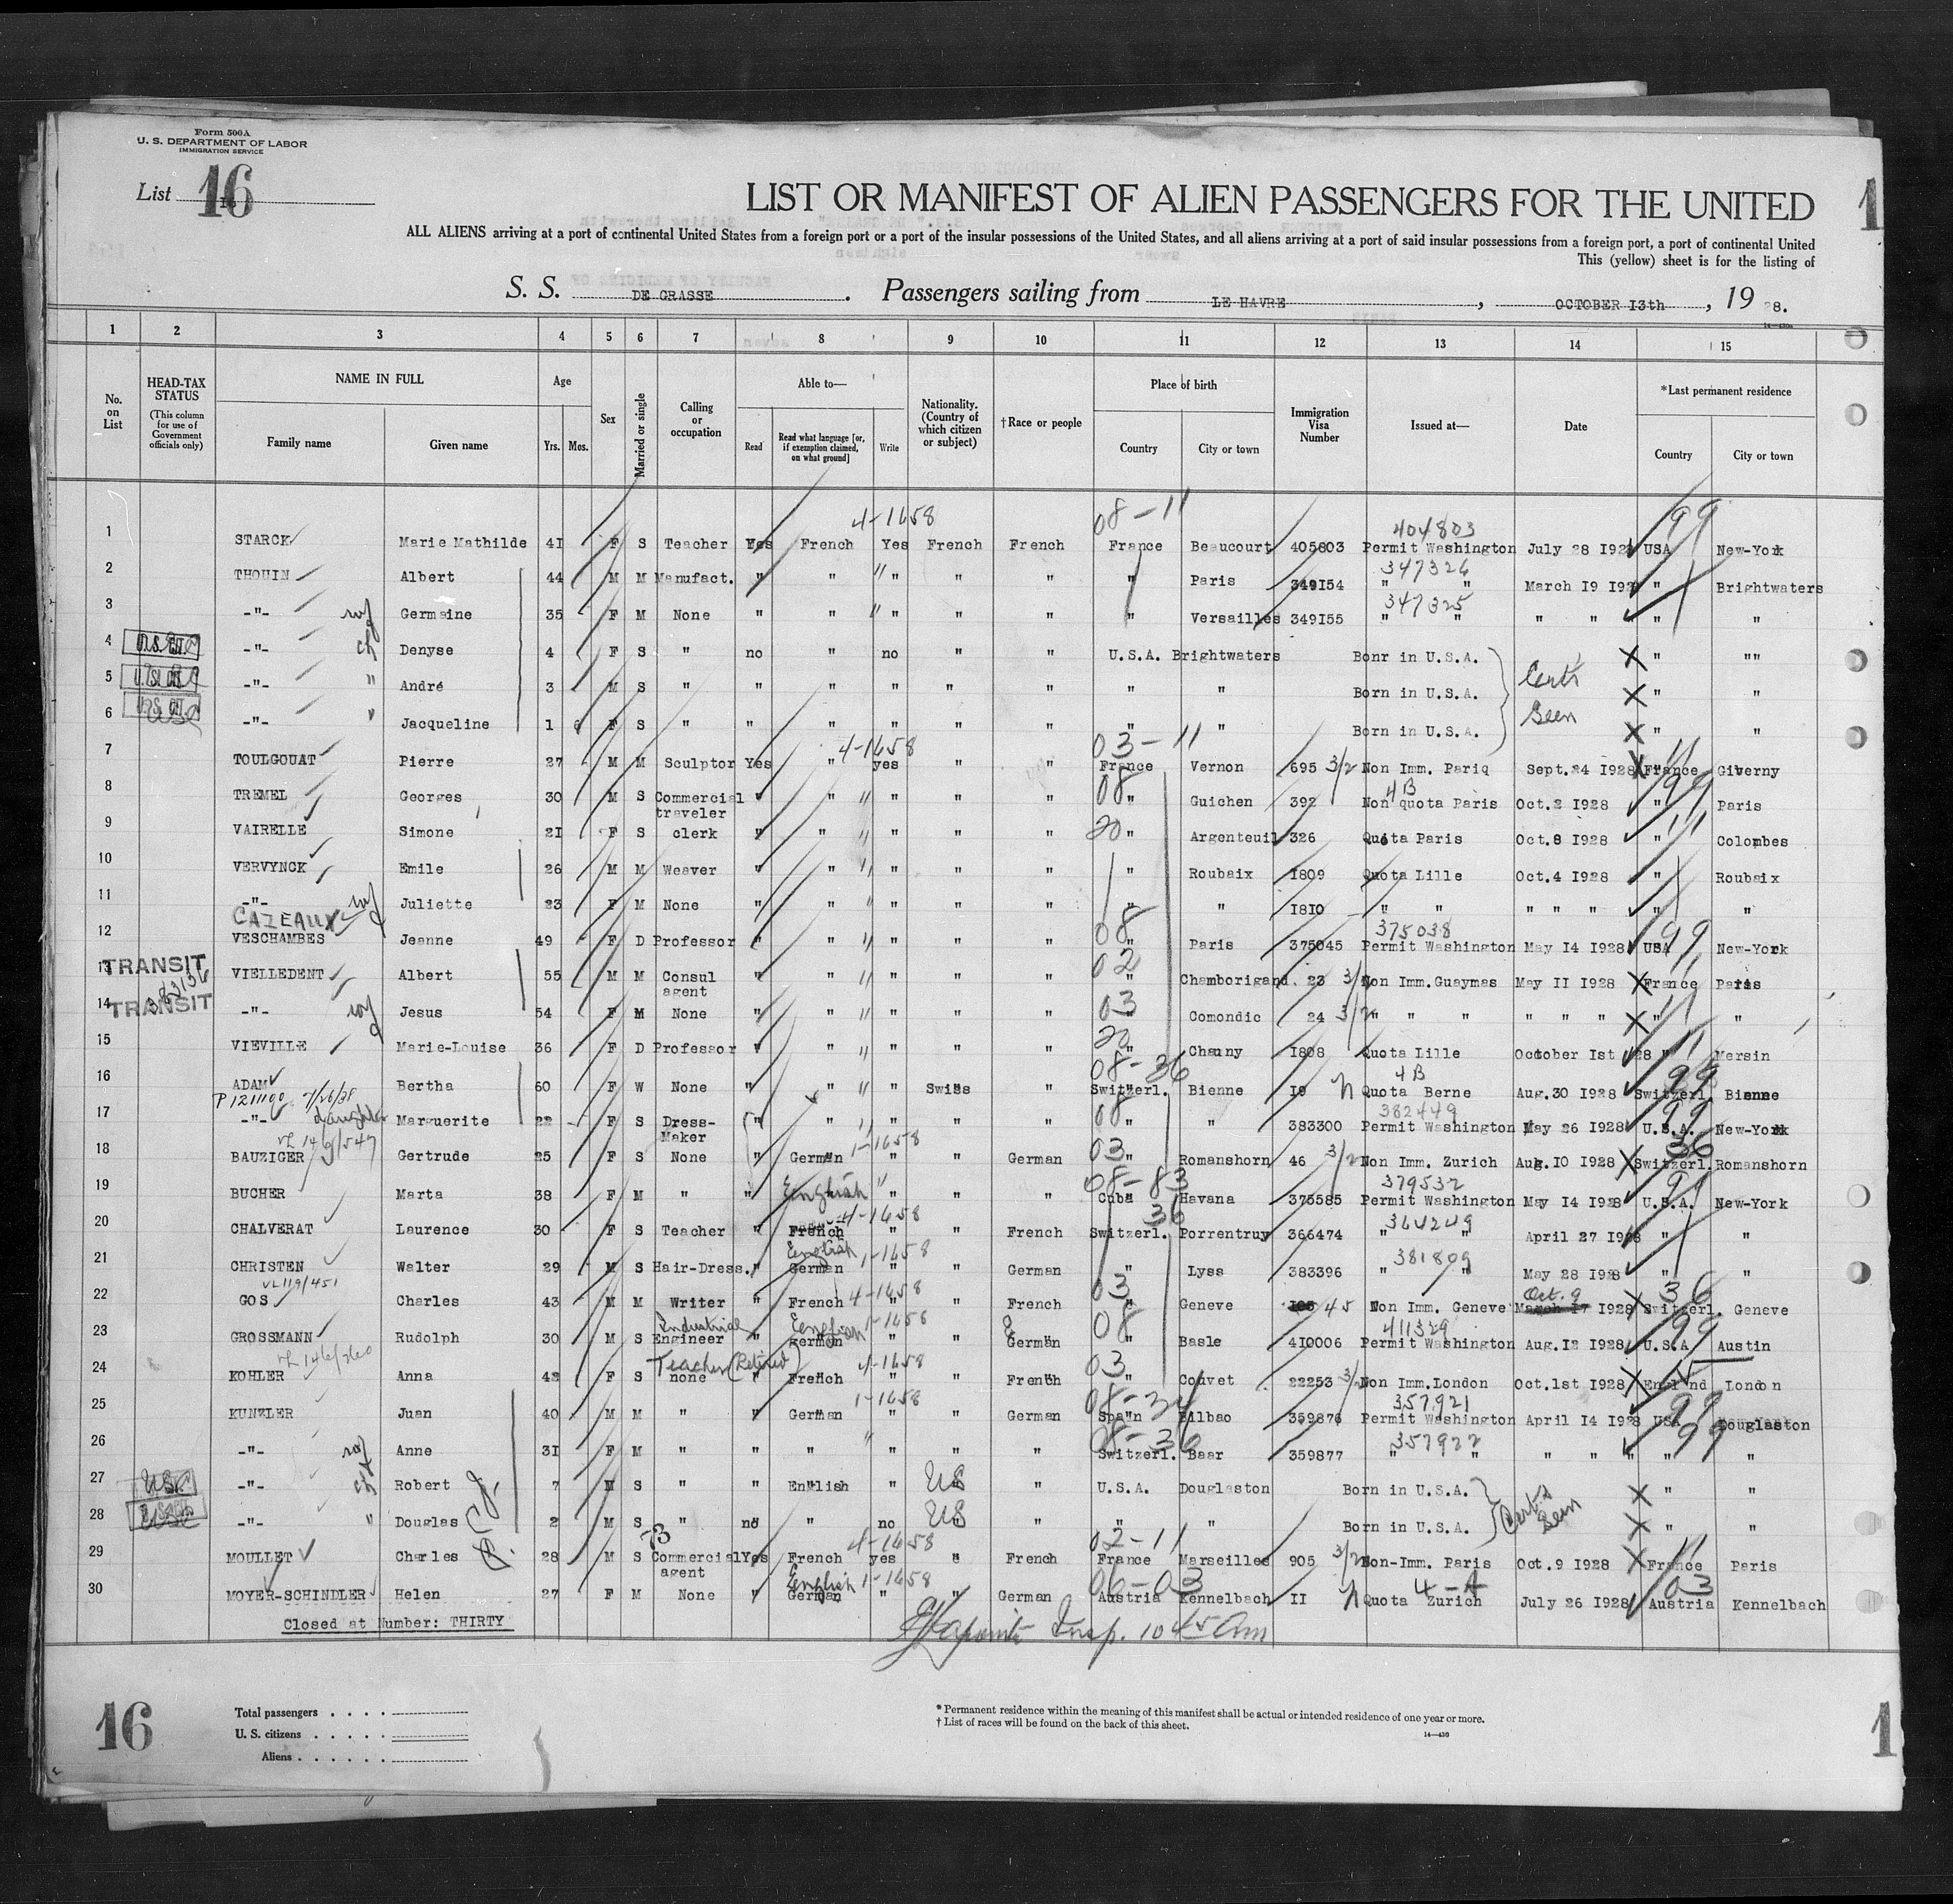 Form 500A
U. S. DEPARTMENT OF LABOR
IMMIGRATION SERVICE
List 16
LIST OR MANIFEST OF ALIEN PASSENGERS FOR THE UNITED
ALL ALIENS arriving at a port of continental United States from a foreign port or a port of the insular possessions of the United States, and all aliens arriving at a port of said insular possessions from a foreign port, a port of continental United
This (yellow) sheet is for the listing of
S. S. DE GRASSE. Passengers sailing from LE HAVRE, OCTOBER I3th, 19 28.
1 2 3 4 5 6 7 8 9 10 11 12 13 14 15
No. on List HEAD-TAX STATUS (This column for use of Government officials only) NAME IN FULL Family name Given name Age Yrs. Mos. Sex Married or single Calling or occupation Able to— Read Read what language [or, if exemption claimed, on what ground] Write Nationality. (Country of which citizen or subject) †Race or people Place of birth Country City or town Immigration Visa Number Issued at— Date *Last permanent residence Country City or town
4-1658 08-11 404803 99
1 STARCK Marie Mathilde 4I F S Teacher Yes French Yes French French France Beaucourt 405603 Permit Washington July 28 I928 USA New-York
347326
2 THOUIN Albert 44 M M Manufact. " " " " " " Paris 349I54 " " March I9 I92 " Brightwaters
347325
3 -"- wf Germaine 35 F M None " " " " " " Versailles 349I55 " " " " " "
4 U.S. CIT. -"- ch Denyse 4 F S " no " no " " U.S.A. Brightwaters Bonr in U.S.A. X " ""
5 U.S. CIT. -"- " André 3 M S " " " " " " " " Born in U.S.A. X " "
Seen
6 USC -"- " Jacqueline 1 6 F S " " " " " " " " Born in U.S.A. X " "
4-1658 03-11 11
7 TOULGOUAT Pierre 27 M M Sculptor Yes " yes " " France Vernon 695 3/2 Non Imm. Pariq Sept.24 I928 X France Giverny
08 4B 99
8 TREMEL Georges 30 M S Commercial traveler " " " " " " Guichen 392 Non quota Paris Oct.2 I928 " Paris
20 11
9 VAIRELLE Simone 2I F S clerk " " " " " " Argenteuil 326 Quota Paris Oct.8 I928 " Colombes
10 VERVYNCK Emile 26 M M Weaver " " " " " " Roubaix I809 Quota Lille Oct.4 I928 " Roubaix
11 -"- wf Juliette 23 F M None " " " " " " " I8I0 " " " " " " "
CAZEAUX 08 375038 99
12 VESCHAMBES Jeanne 49 F D Professor " " " " " " Paris 375045 Permit Washington May I4 I928 USA New-York
TRANSIT 02
13 VIELLEDENT Albert 55 M M Consul agent " " " " " " Chamborigand. 23 3/2 Non Imm.Guaymas May II I928 X France Paris
TRANSIT 03
14 -"- wf Jesus 54 F M None " " " " " " Comondic 24 3/2 " " " " " " X " "
20
15 VIEVILLE Marie-Louise 36 F D Professor " " " " " " Chauny I808 Quota Lille October Ist 28 " Mersin
08-36 4B 99
16 ADAM Bertha 60 F W None " " " Swiss " Switzerl. Bienne I9 Quota Berne Aug.30 I928 Switzerl. Bienne
P 1211100 7/26/38 08 382449 99
17 -"- daughter Marguerite 22 F S Dress-Maker " " " " " " " 383300 Permit Washington May 26 I928 U.S.A. New-York
1-1658 03 36
18 BAUZIGER Gertrude 25 F S None " German " " German " Romanshorn 46 3/2 Non Imm. Zurich Aug.I0 I928 X Switzerl. Romanshorn
08-83 379532 99
19 BUCHER Marta 38 F M " " English " " " Cuba Havana 375585 Permit Washington May I4 I928 U.S.A. New-York
4-1658 36 364249
20 CHALVERAT Laurence 30 F S Teacher " French " " French Switzerl. Porrentruy 366474 " " April 27 I928 " "
English 1-1658 381809
21 CHRISTEN Walter 29 M S Hair-Dress. " German " " German " Lyss 383396 " " May 28 I928 " "
VL119/451 4-1658 03 Oct. 9 36
22 GOS Charles 43 M M Writer " French " " French " Geneve 105 45 Non Imm. Geneve March I7 I928 X Switzerl. Geneve
Industrial English 1-1658 08 411329 99
23 GROSSMANN Rudolph 30 M S Engineer " german " " German " Basle 4I0006 Permit Washington Aug.I2 I928 U.S.A Austin
Teacher (Retired) 4-1658 03
24 KOHLER Anna 43 F S none " French " " French " Couvet 22253 3/2 Non Imm.London Oct.Ist I928 X England London
1-1658 08-34 357921 99
25 KUNZLER Juan 40 M M " " German " " German Spain Bilbao 359876 Permit Washington April I4 I928 USA Douglaston
08-36 357922 99
26 -"- wf Anne 3I F M " " " " " " Switzerl. Baar 359877 " " " " " " "
27 USC -"- ch Robert 7 M S " " English " US " U.S.A. Douglaston Born in U.S.A. X " "
Certs Seen
28 USC -"- " Douglas 2 M S " no " no US " " " Born in U.S.A. X " "
4-1658 02-11 11
29 MOULLET Charles 28 M S Commercial agent Yes French yes " French France Marseilles 905 3/2 Non-Imm. Paris Oct.9 I928 X France Paris
English 1-1658 06-03 4-A 03
30 MOYER-SCHINDLER Helen 27 F M None " German " " German Austria Kennelbach II Quota Zurich July 26 I928 Austria Kennelbach
Closed at Number: THIRTY
Insp. 10 45 Am
16
Total passengers
U. S. citizens
Aliens
* Permanent residence within the meaning of this manifest shall be actual or intended residence of one year or more.
† List of races will be found on the back of this sheet.
14—430
1